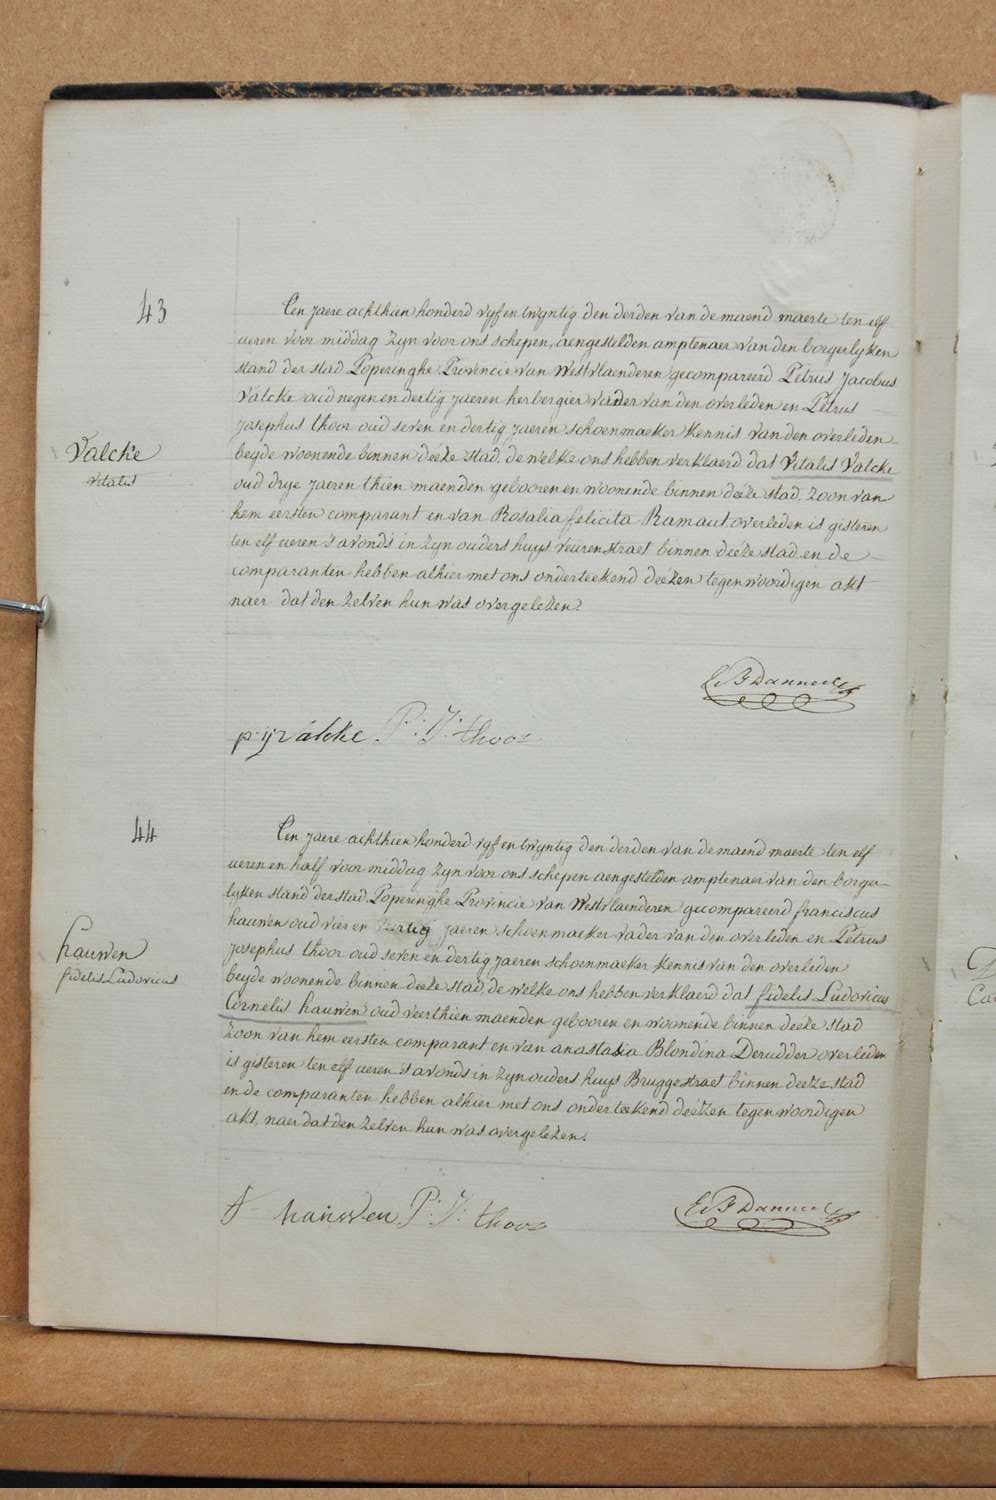 43
Een jaere achthien honderd vyf en twyntig den derden van de maend maerte ten elf
ueren voor middag zyn voor ons schepen, aengestelden amptenaer van den borgerlyken
stand der stad Poperinghe Provincie van Westvlaenderen gecompareerd Petrus Jacobus
Valcke oud negen en dertig jaeren herbergier vader van den overleden en Petrus
Josephus thoor oud seven en dertig jaeren schoenmaeker kennis van den overleden
Valcke
Vitalis
beyde woonende binnen deeze stad, de welke ons hebben verklaerd dat Vitalis Valcke
oud drye jaeren thien maenden gebooren en woonende binnen deeze stad, zoon van
hem eersten comparant en van Rosalia felicita Ramaut overleden is gisteren
ten elf ueren 's avonds in zyn ouders huys veurenstraet binnen deeze stad en de
comparanten hebben alhier met ons onderteekend deézen tegenwoordigen akt
naer dat den zelven hun was overgelezen.
p:ij valcke P: J: thoor
44
Een jaere achthien honderd vyf en twyntig den derden van de maend maerte ten elf
ueren en half voor middag zyn voor ons schepen aengestelden amptenaer van den borger-
lyken stand der stad Poperinghe Provincie van Westvlaenderen gecompareerd franciscus
hauwen oud vier en jaeren schoenmaeker vader van den overleden en Petrus
Josephus thoor oud seven en dertig jaeren schoenmaeker kennis van den overleden
hauwen
fidelis Ludovicus
beyde woonende binnen deeze stad, de welke ons hebben verklaerd dat fidelis Ludovicus
Cornelis hauwen oud veerthien maenden gebooren en woonende binnen deeze stad
zoon van hem eersten comparant en van anastasia Blondina Derudder overleden
is gisteren ten elf ueren 's avonds in zyn ouders huys Bruggestraet binnen deeze stad
en de comparanten hebben alhier met ons onderteekend deézen tegenwoordigen
akt, naer dat den zelven hun was overgelezen.
f hauwen P: J: thoor